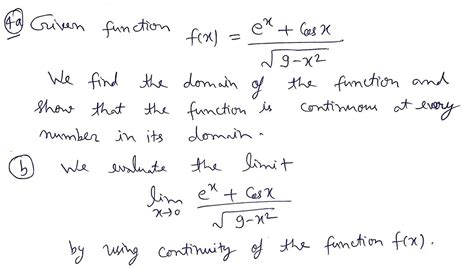 4a Given function f(x) = (e^x + Cos x) / √(9-x²)
We find the domain of the function and
show that the function is continuous at every
number in its domain.
b We evaluate the limit
lim x→0 (e^x + Cos x) / √(9-x²)
by using continuity of the function f(x).